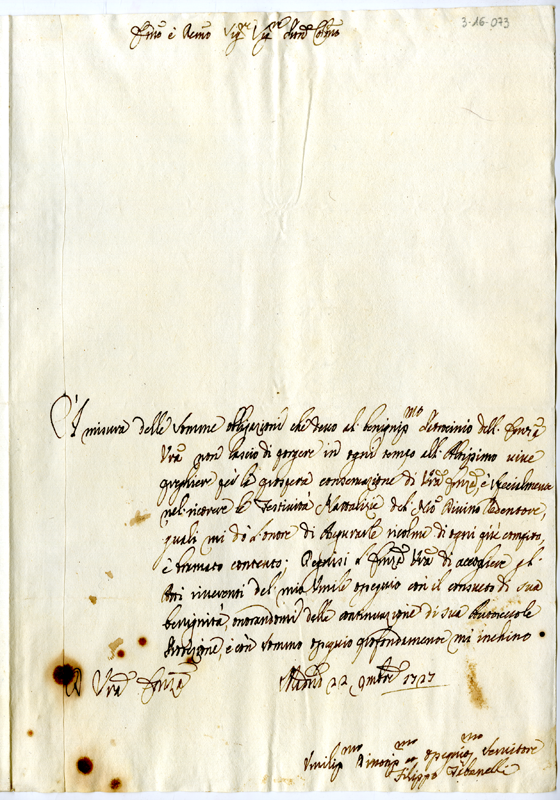 3·16·073
Emo è Rmo Sigr Sigr Pnd Colmo
A misura delle somme obligazioni che devo al benignismo Patrocinio dell' Emza
Vra non lascio di porgere in ogni tempo all' Altissimo vive
preghiere per la prospera conservazione di Vra Emza, è specialmente
nel ricorrere le Festività Nattalizie del Nro Divino Redentore,
quali mi dò l'onore di Augurarle ricolme di ogni più compito,
è bramato contento; Degnisi l' Emza Vra di accogliere gl'
Atti riverenti del mio Umile ossequio con il consueto di sua
benignità onorandomi della continuazione di sua Autorevole
Protezione, è con sommo ossequio profondamente mi inchino
D Vra Emza
Madrid 22 9mbre 1727
Umilismo Divotismo et ossequiosmo Servitore
Filippo